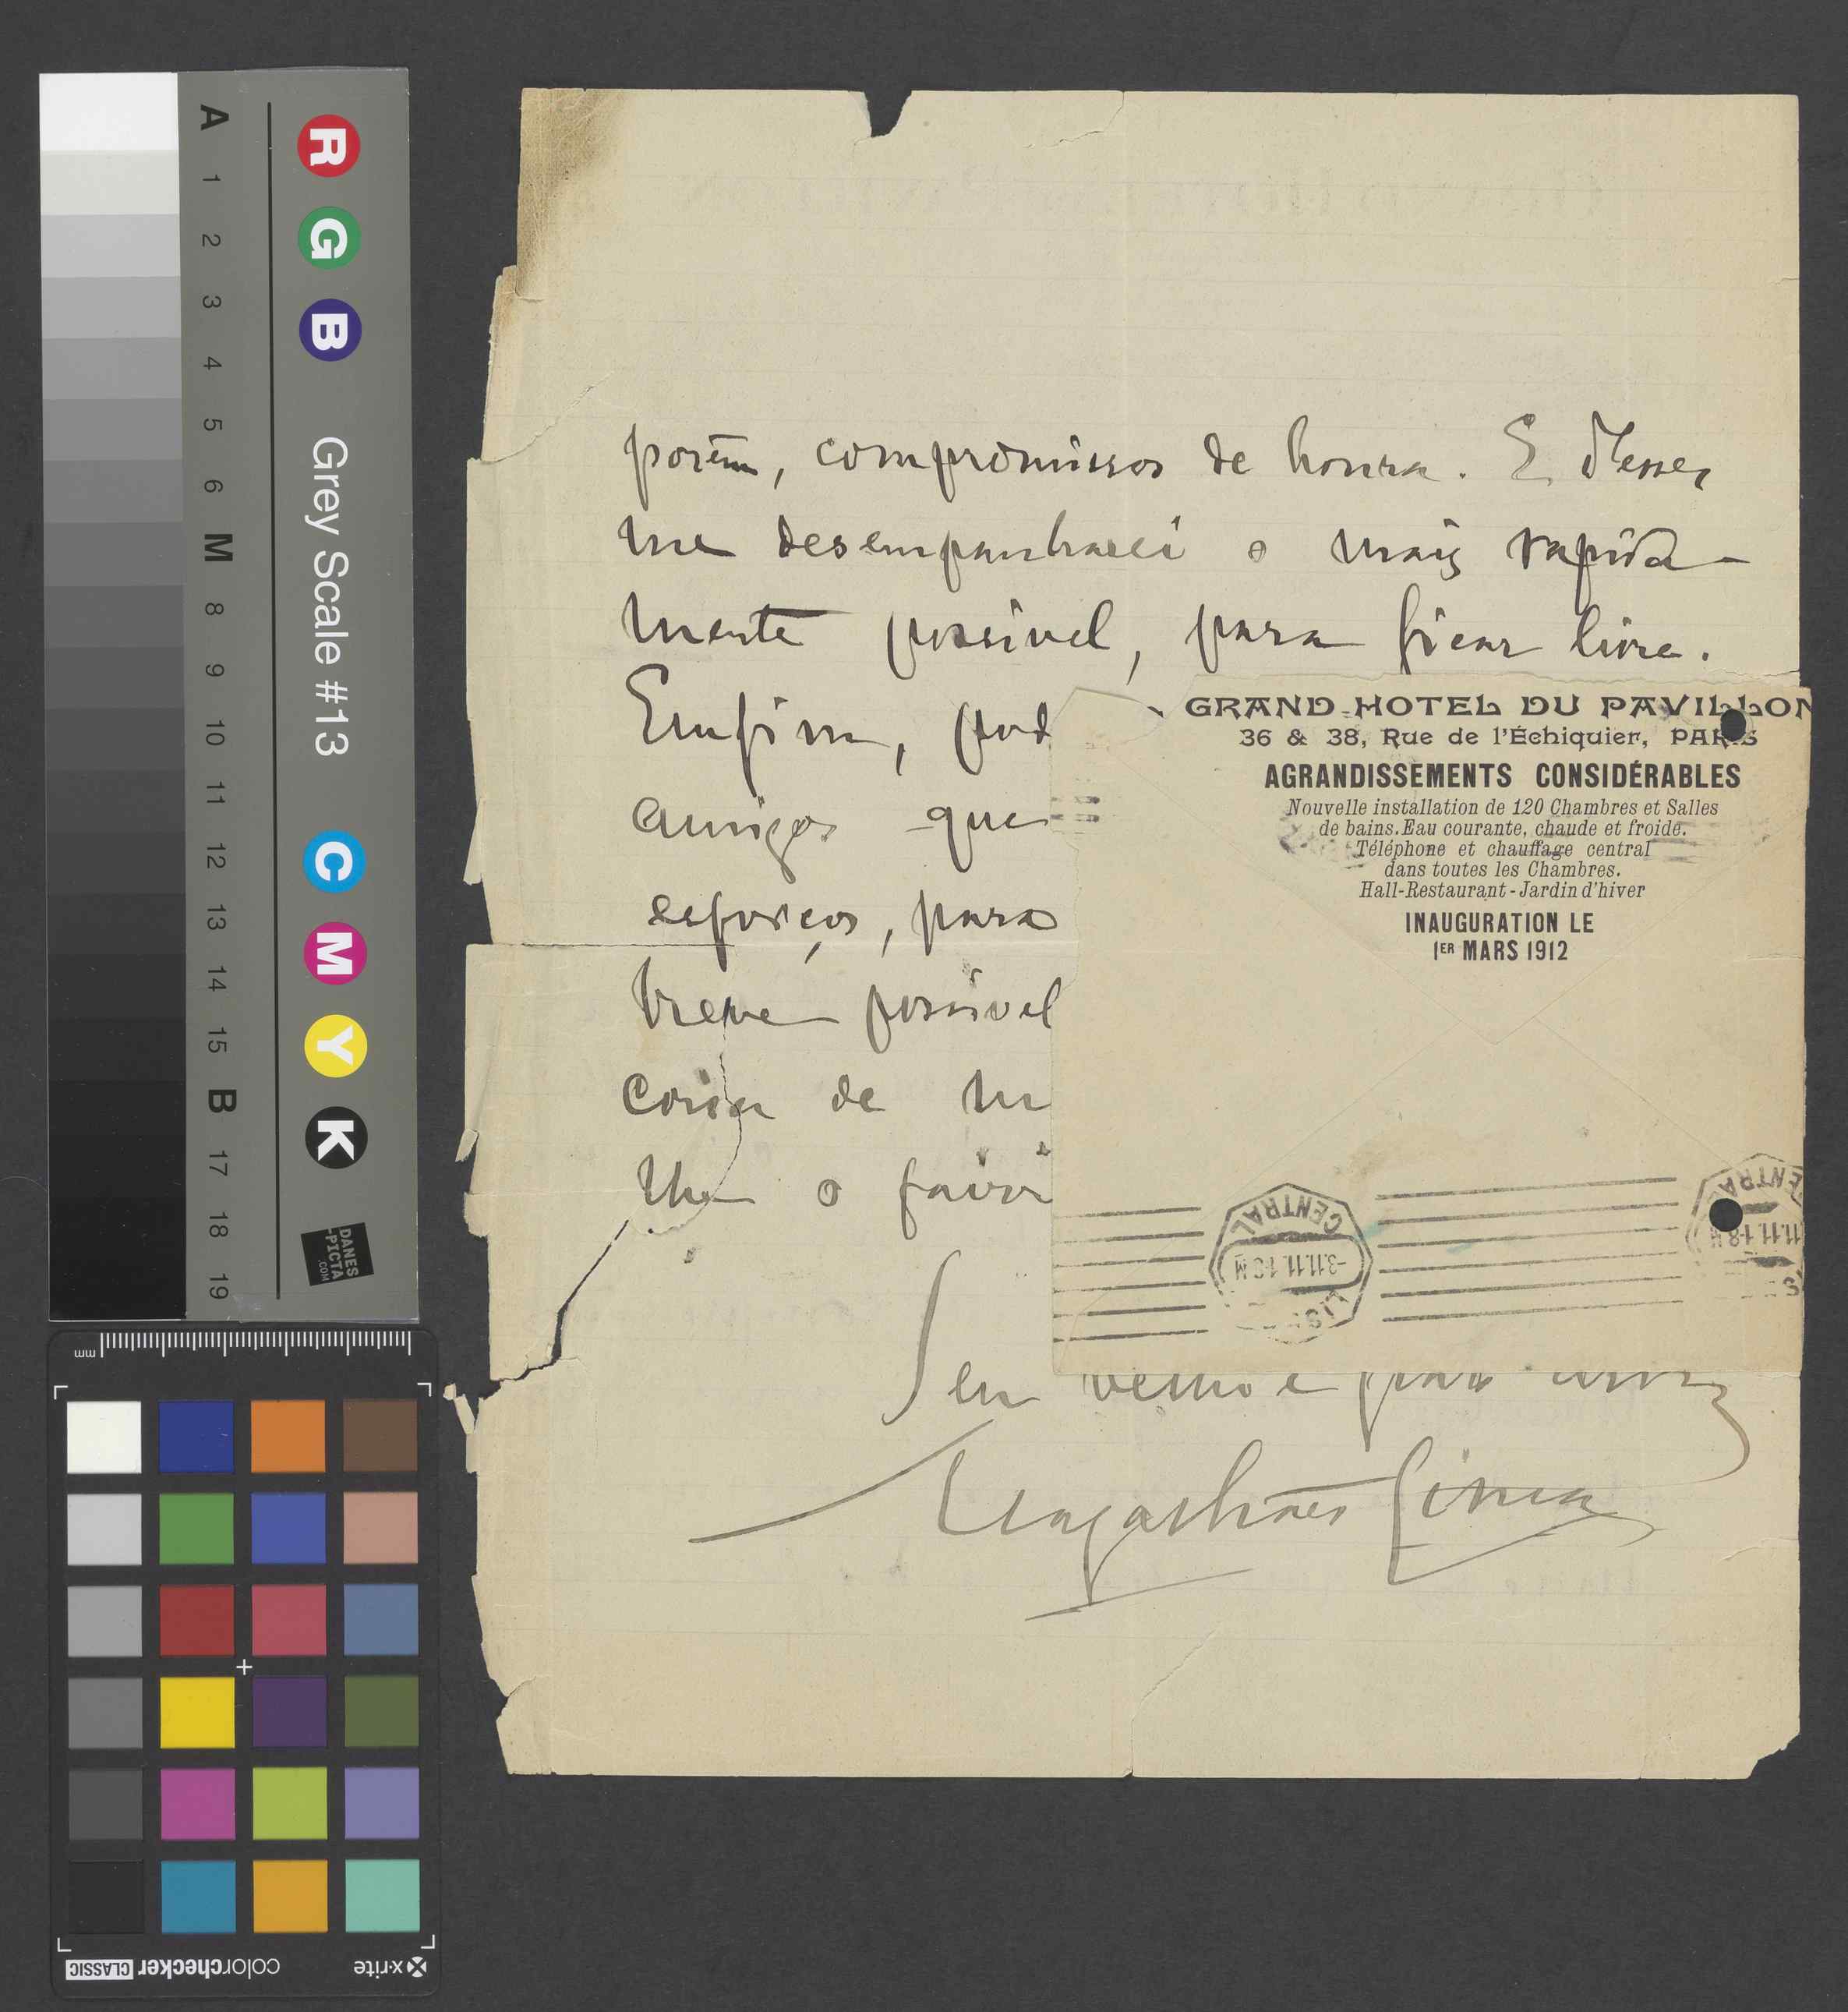 porém, compromissos de honra. E d'esses
me desempenharei o mais rapida-
mente possivel, para ficar livre.
Emfim, pod
amigos que
esforços, para
breve possivel
coisa de m
lhe o favor
Seu velho e
Magalhães Lima
GRAND HOTEL DU PAVILLON
36 & 38, Rue de l'Échiquier, PARIS
AGRANDISSEMENTS CONSIDÉRABLES
Nouvelle installation de 120 Chambres et Salles
de bains. Eau courante, chaude et froide.
Téléphone et chauffage central
dans toutes les Chambres.
Hall-Restaurant - Jardin d'hiver
INAUGURATION LE
1ER MARS 1912
CENTRAL
-3.11.11.1-8 M
LIS
ENTRAL
11.11.1-8 M
A 1 2 3 4 5 6 M 8 9 10 11 12 13 14 15 B 17 18 19
R G B Grey Scale #13 C M Y K
DANES
-PICTA
.COM
mm
x-rite colorchecker CLASSIC